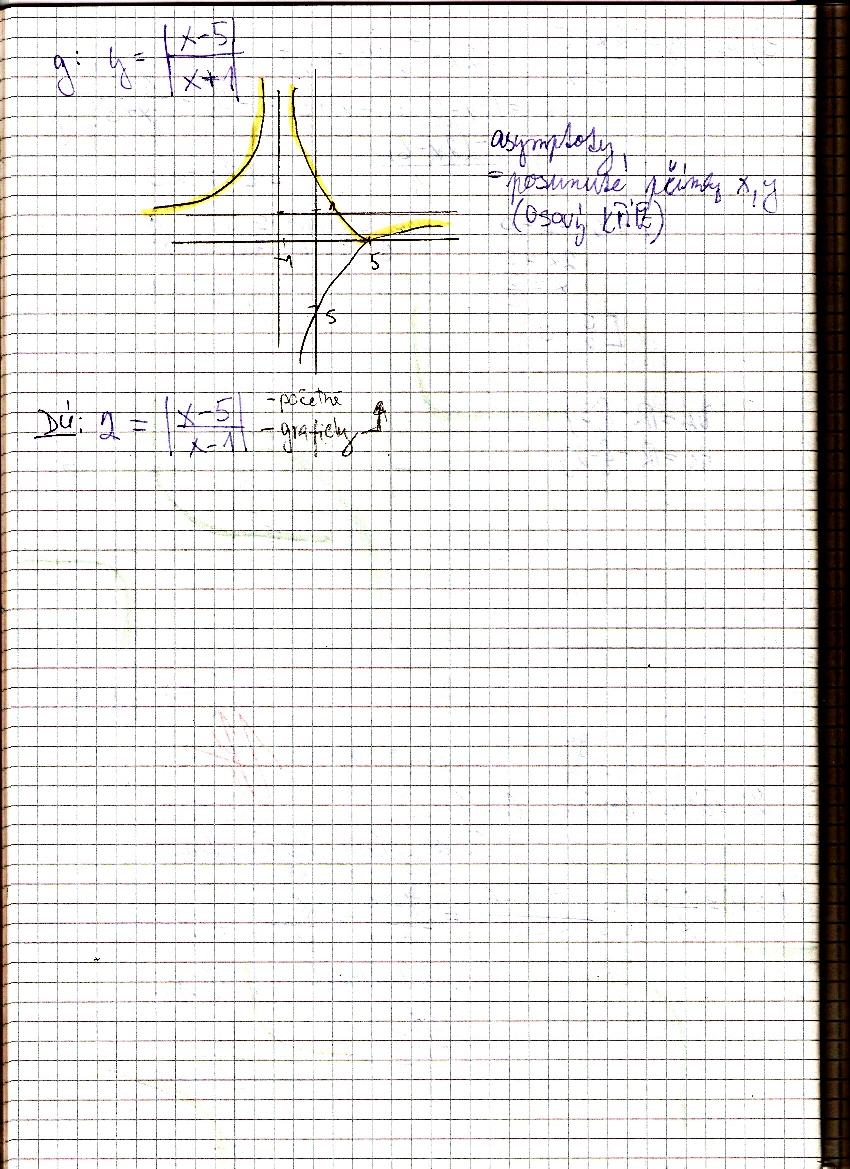 g: y = |x-5 / x+1|
asymptoty
= posunuté přímky x, y
(osový KŘÍŽ)
1
-1
5
5
DÚ: 2 = |x-5 / x-1|
- početně
- graficky